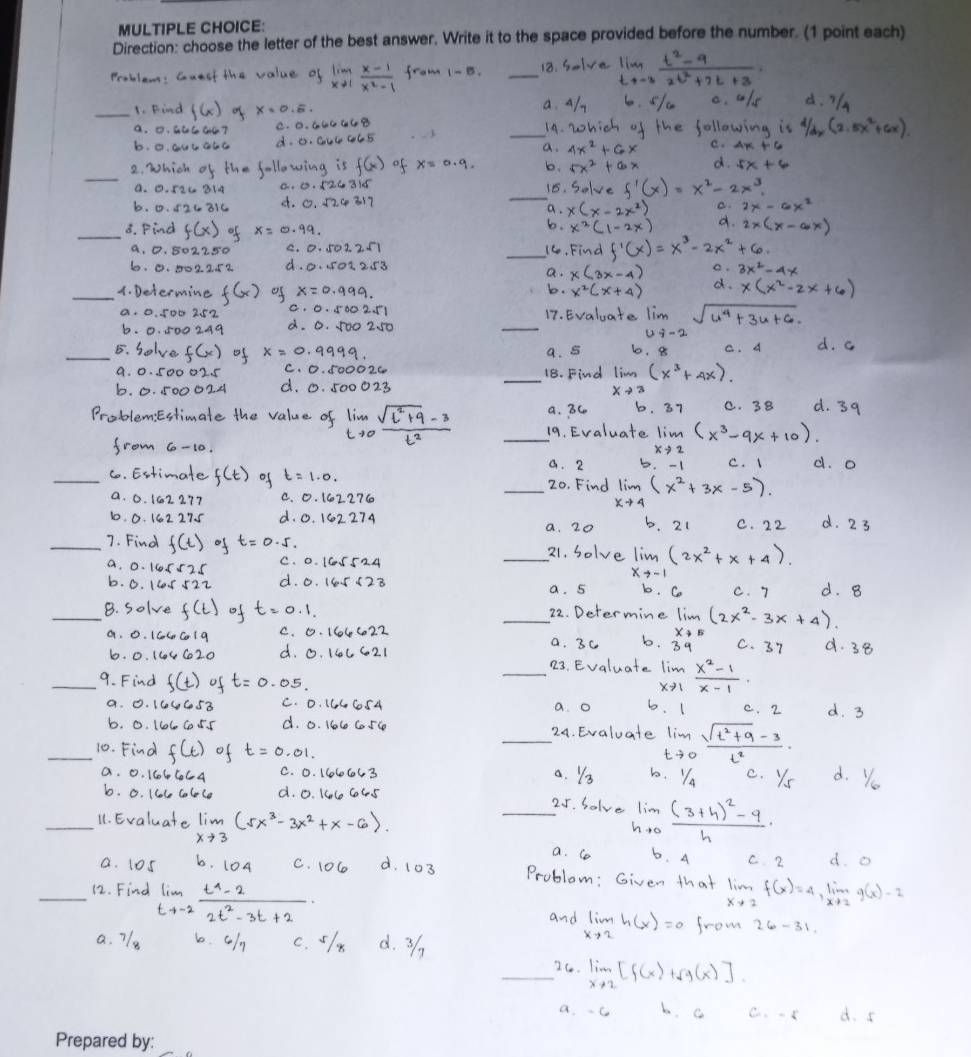 MULTIPLE CHOICE:
Direction: choose the letter of the best answer. Write it to the space provided before the number. (1 point each)
Problem: Guest the value of lim x→1 (x-1)/(x²-1) from 1-5.
___1. Find f(x) of x=0.5.
a. 0.666667 c. 0.666668
b. 0.666666 d. 0.666665
___2. Which of the following is f(x) of x=0.9.
a. 0.526314 c. 0.526315
b. 0.526316 d. 0.526317
___3. Find f(x) of x=0.99.
a. 0.502250 c. 0.502251
b. 0.502252 d. 0.502253
___4. Determine f(x) of x=0.999.
a. 0.500252 c. 0.500251
b. 0.500249 d. 0.500250
___5. Solve f(x) of x=0.9999.
a. 0.500025 c. 0.500026
b. 0.500024 d. 0.500023
Problem: Estimate the value of lim t→0 (√(t²+9) - 3)/t²
from 6-10.
___6. Estimate f(t) of t=1.0.
a. 0.162277 c. 0.162276
b. 0.162275 d. 0.162274
___7. Find f(t) of t=0.5.
a. 0.165525 c. 0.165524
b. 0.165522 d. 0.165523
___8. Solve f(t) of t=0.1.
a. 0.166619 c. 0.166622
b. 0.166620 d. 0.166621
___9. Find f(t) of t=0.05.
a. 0.166653 c. 0.166654
b. 0.166655 d. 0.166656
___10. Find f(t) of t=0.01.
a. 0.166664 c. 0.166663
b. 0.166666 d. 0.166665
___11. Evaluate lim x→3 (5x³-3x²+x-6).
a. 105 b. 104 c. 106 d. 103
___12. Find lim t→-2 (t⁴-2)/(2t²-3t+2).
a. 7/8 b. 6/7 c. 5/8 d. 3/7
Prepared by:
___13. Solve lim t→-3 (t²-9)/(2t²+7t+3).
a. 4/7 b. 5/6 c. 6/5 d. 7/4
___14. Which of the following is d/dx (2.5x²+6x).
a. 4x²+6x c. 4x+6
b. 5x²+6x d. 5x+6
___15. Solve f'(x) = x²-2x³.
a. x(x-2x²) c. 2x-6x²
b. x²(1-2x) d. 2x(x-6x)
___16. Find f'(x) = x³-2x²+6.
a. x(3x-4) c. 3x²-4x
b. x²(x+4) d. x(x²-2x+6)
___17. Evaluate lim u→-2 √(u⁴+3u+6).
a. 5 b. 8 c. 4 d. 6
___18. Find lim x→3 (x³+4x).
a. 36 b. 37 c. 38 d. 39
___19. Evaluate lim x→2 (x³-9x+10).
a. 2 b. -1 c. 1 d. 0
___20. Find lim x→4 (x²+3x-5).
a. 20 b. 21 c. 22 d. 23
___21. Solve lim x→-1 (2x²+x+4).
a. 5 b. 6 c. 7 d. 8
___22. Determine lim x→5 (2x²-3x+4).
a. 36 b. 39 c. 37 d. 38
___23. Evaluate lim x→1 (x²-1)/(x-1).
a. 0 b. 1 c. 2 d. 3
___24. Evaluate lim t→0 (√(t²+9) - 3)/t².
a. 1/3 b. 1/4 c. 1/5 d. 1/6
___25. Solve lim h→0 ((3+h)²-9)/h.
a. 6 b. 4 c. 2 d. 0
Problem: Given that lim x→2 f(x)=4, lim x→2 g(x)-2
and lim x→2 h(x)=0 from 26-31.
___26. lim x→2 [f(x)+5g(x)].
a. -6 b. 6 c. -5 d. 5